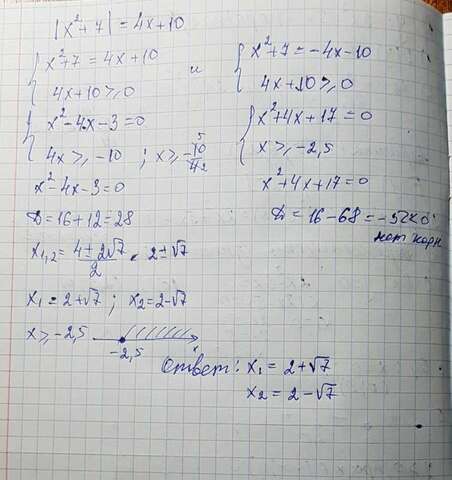 |x²+7| = 4x+10
{ x²+7 = 4x+10
4x+10 ≥ 0
и
{ x²+7 = -4x-10
4x+10 ≥ 0
{ x²-4x-3 = 0
4x ≥ -10 ; x ≥ -10/4 5/2
{ x²+4x+17 = 0
x ≥ -2,5
x²-4x-3=0
D = 16+12 = 28
x²+4x+17 = 0
D = 16-68 = -52 < 0
нет корн
x₁,₂ = (4±2√7)/2 = 2±√7
x₁ = 2+√7 ; x₂ = 2-√7
x ≥ -2,5
-2,5
x
Ответ: x₁ = 2+√7
x₂ = 2-√7